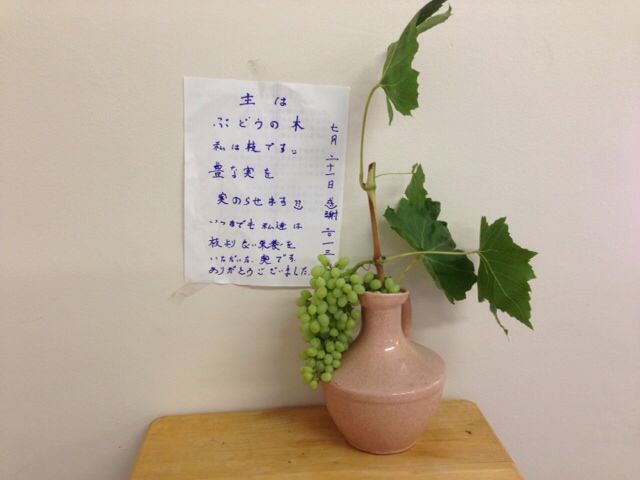 主は
ぶどうの木
私は枝です。
豊な実を
実のらせます!!
いつまでも私達は
枝より良い栄養を
いただいた実です
ありがとうございました。
七月二十一日 感謝 二〇一三